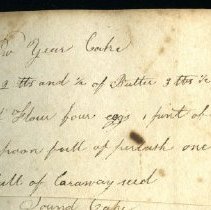 Year Cake
2 lbs and ½ of Butter 3 lbs ½
Flour four eggs 1 pint of
spoon full of perlash one
full of Caraway seed
Pound Cake